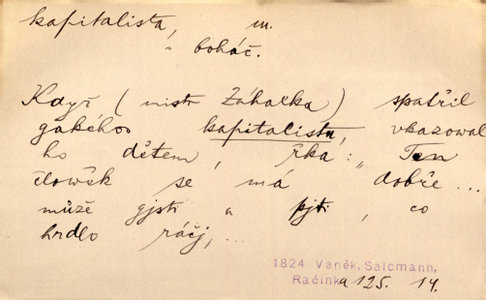 kapitalista, m.
= boháč.
Když (mistr Zahálka) spatřil
gakéhos kapitalistu, vkazowal
ho dětem, řka: „Ten
člowěk se má dobře...
může gjsti a pjti, co
hrdlo ráčj,...
1824 Vaněk, Salcmann,
Račinka 125. 14.